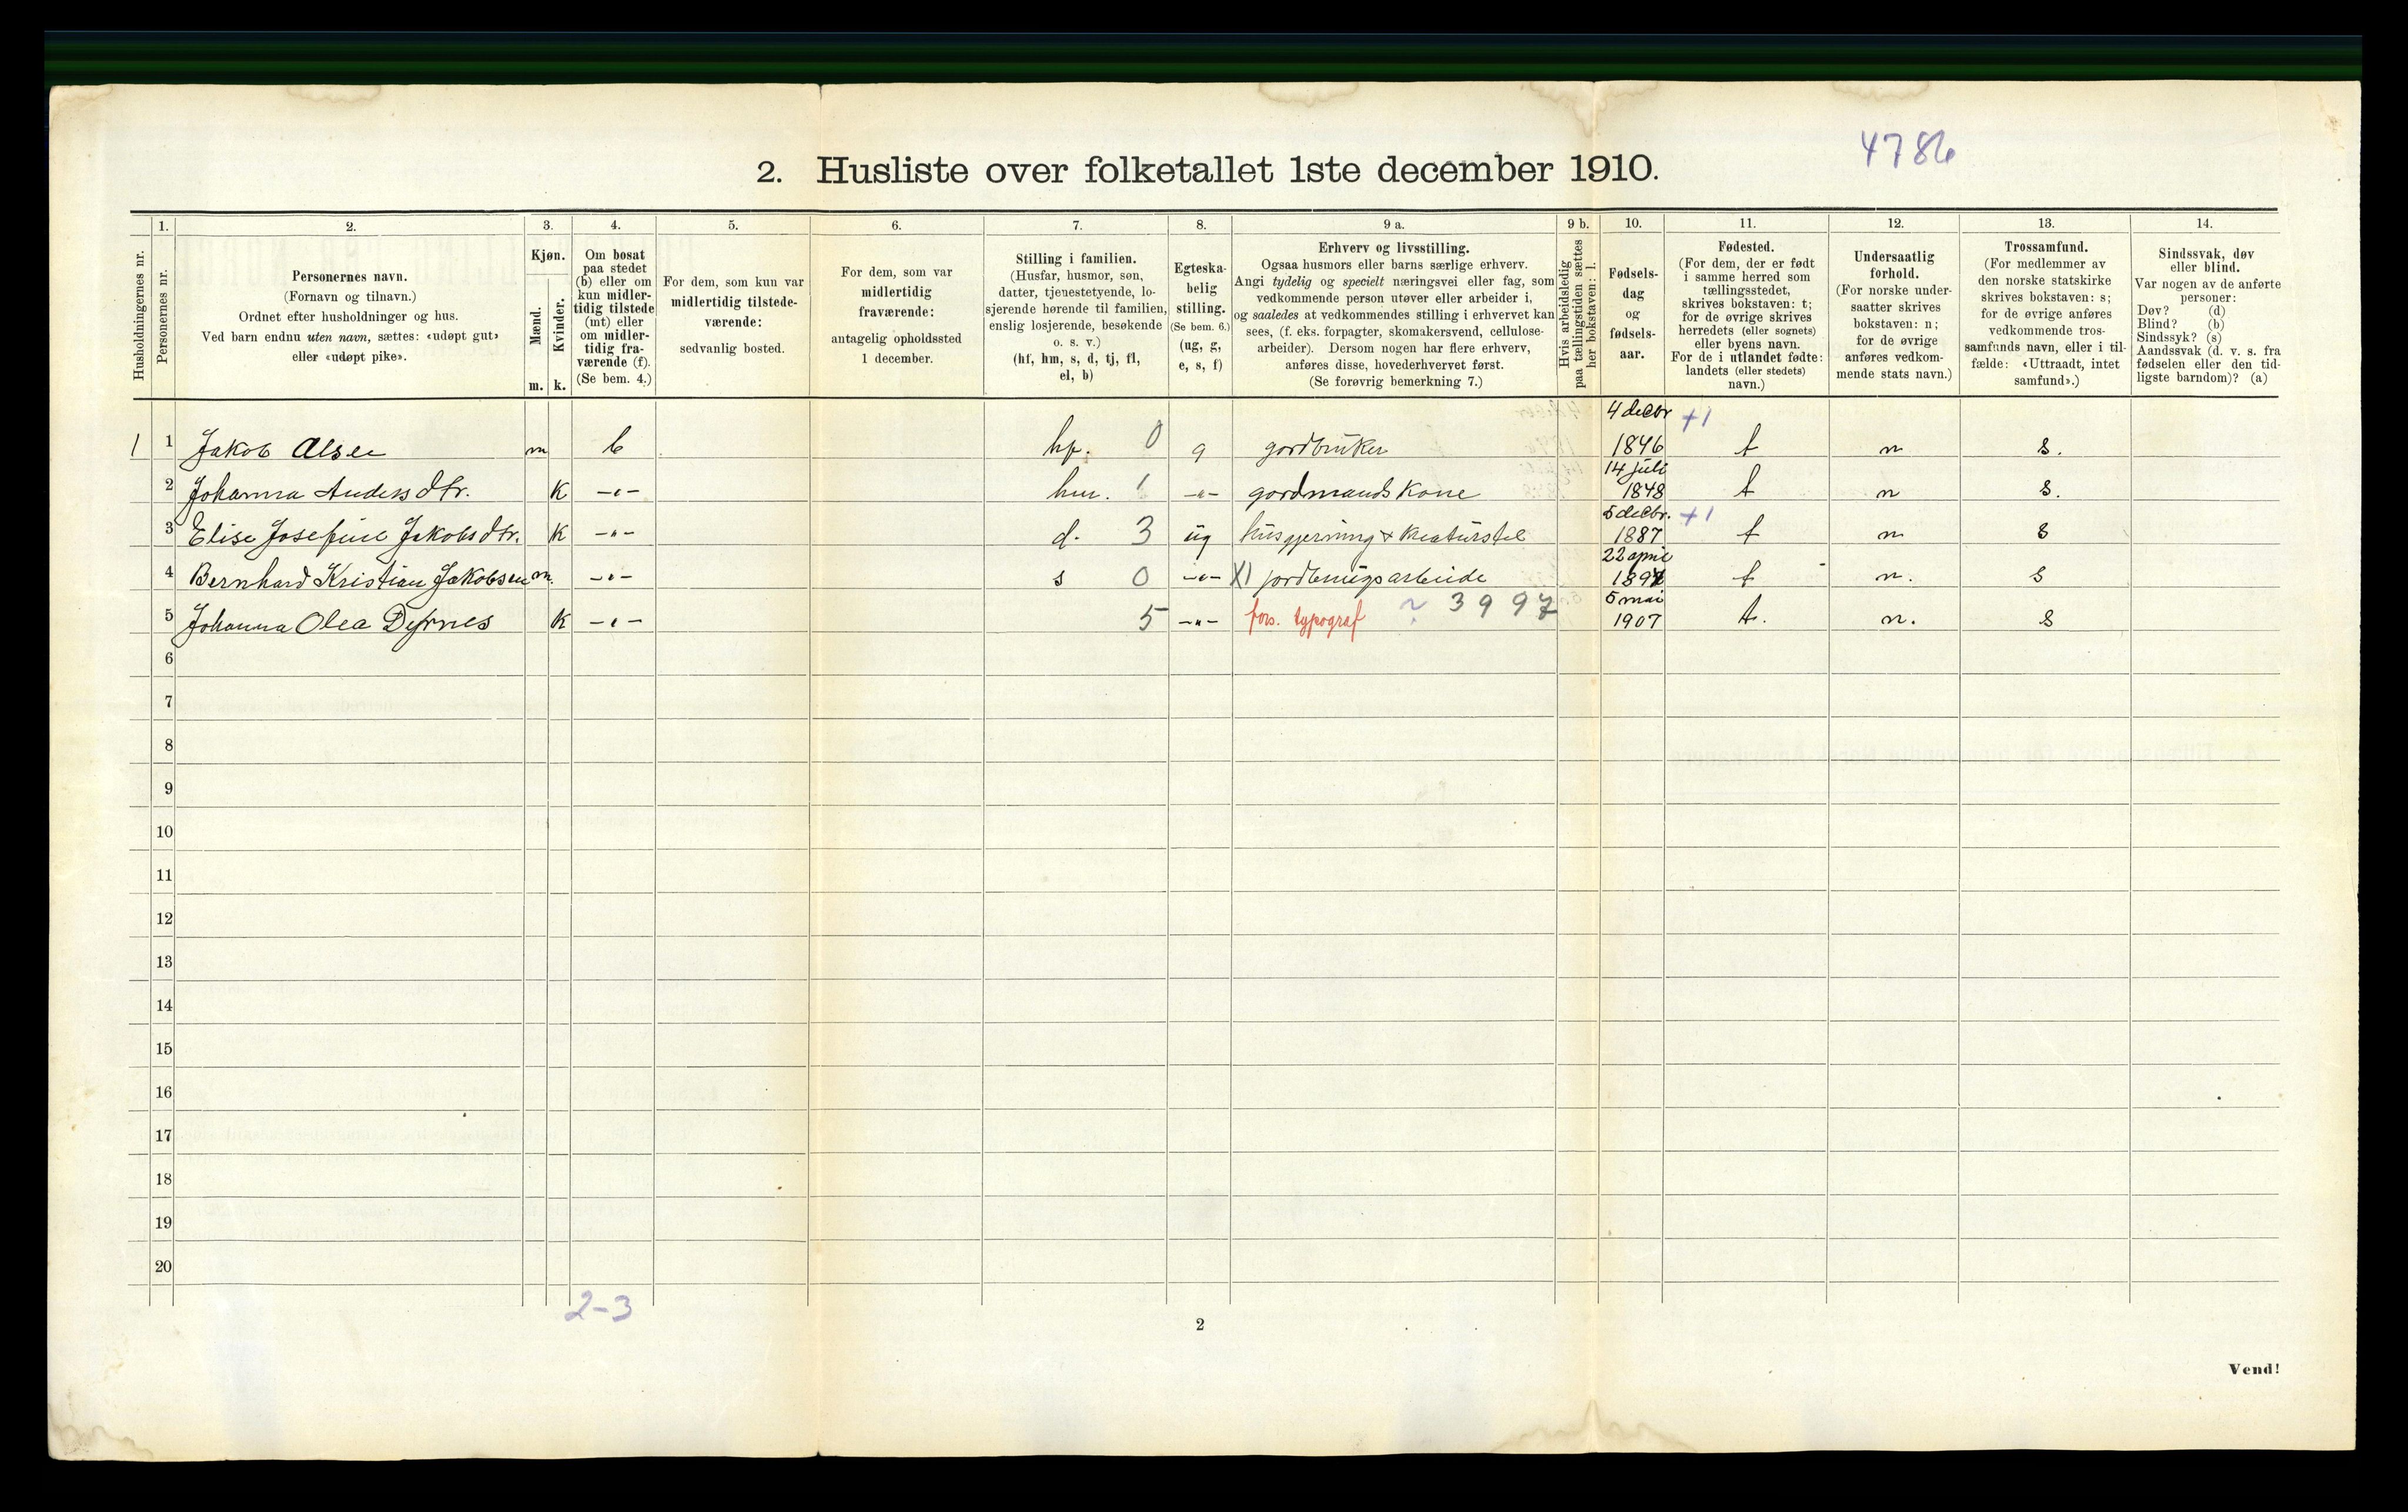 4786
2. Husliste over folketallet 1ste december 1910.
Husholdningernes nr.
1.
Personernes nr.
2.
Personernes navn.
(Fornavn og tilnavn.)
Ordnet efter husholdninger og hus.
Ved barn endnu uten navn, sættes: «udøpt gut»
eller «udøpt pike».
3.
Kjøn.
Mænd.
Kvinder.
m. k.
4.
Om bosat
paa stedet
(b) eller om
kun midler-
tidig tilstede
(mt) eller
om midler-
tidig fra-
værende (f).
(Se bem. 4.)
5.
For dem, som kun var
midlertidig tilstede-
værende:
sedvanlig bosted.
6.
For dem, som var
midlertidig
fraværende:
antagelig opholdssted
1 december.
7.
Stilling i familien.
(Husfar, husmor, søn,
datter, tjenestetyende, lo-
sjerende hørende til familien,
enslig losjerende, besøkende
o. s. v.)
(hf, hm, s, d, tj, fl,
el, b)
8.
Egteska-
belig
stilling.
(Se bem. 6.)
(ug, g,
e, s, f)
9 a.
Erhverv og livsstilling.
Ogsaa husmors eller barns særlige erhverv.
Angi tydelig og specielt næringsvei eller fag, som
vedkommende person utøver eller arbeider i,
og saaledes at vedkommendes stilling i erhvervet kan
sees, (f. eks. forpagter, skomakersvend, cellulose-
arbeider). Dersom nogen har flere erhverv,
anføres disse, hovederhvervet først.
(Se forøvrig bemerkning 7.)
9 b.
Hvis arbeidsledig
paa tællingstiden sættes
her bokstaven: l.
10.
Fødsels-
dag
og
fødsels-
aar.
11.
Fødested.
(For dem, der er født
i samme herred som
tællingsstedet,
skrives bokstaven: t;
for de øvrige skrives
herredets (eller sognets)
eller byens navn.
For de i utlandet fødte:
landets (eller stedets)
navn.)
12.
Undersaatlig
forhold.
(For norske under-
saatter skrives
bokstaven: n;
for de øvrige
anføres vedkom-
mende stats navn.)
13.
Trossamfund.
(For medlemmer av
den norske statskirke
skrives bokstaven: s;
for de øvrige anføres
vedkommende tros-
samfunds navn, eller i til-
fælde: «Uttraadt, intet
samfund».)
14.
Sindssvak, døv
eller blind.
Var nogen av de anførte
personer:
Døv? (d)
Blind? (b)
Sindssyk? (s)
Aandssvak (d. v. s. fra
fødselen eller den tid-
ligste barndom)? (a)
4 decbr +1
1 1 Jakob Olsen m b hf. 0 g gordbruker 1846 t n s.
14 juli
2 Johanna Andersdtr. K -"- hm. 1 -"- gordmands kone 1848 t n s.
5 decbr. +1
3 Elise Josefine Jakobsdtr. K -"- d. 3 ug husgjerning & kreaturstel 1887 t n s
22 april
4 Bernhard Kristian Jakobsen m. -"- s 0 -"- X) jordbrugsarbeide 1891 t n. s
5 mai
5 Johanna Olea Dyrnes K -"- 5 -"- fors. typograf ~ 3997 1907 t. n. s
6
7
8
9
10
11
12
13
14
15
16
17
18
19
20
2-3
2
Vend!